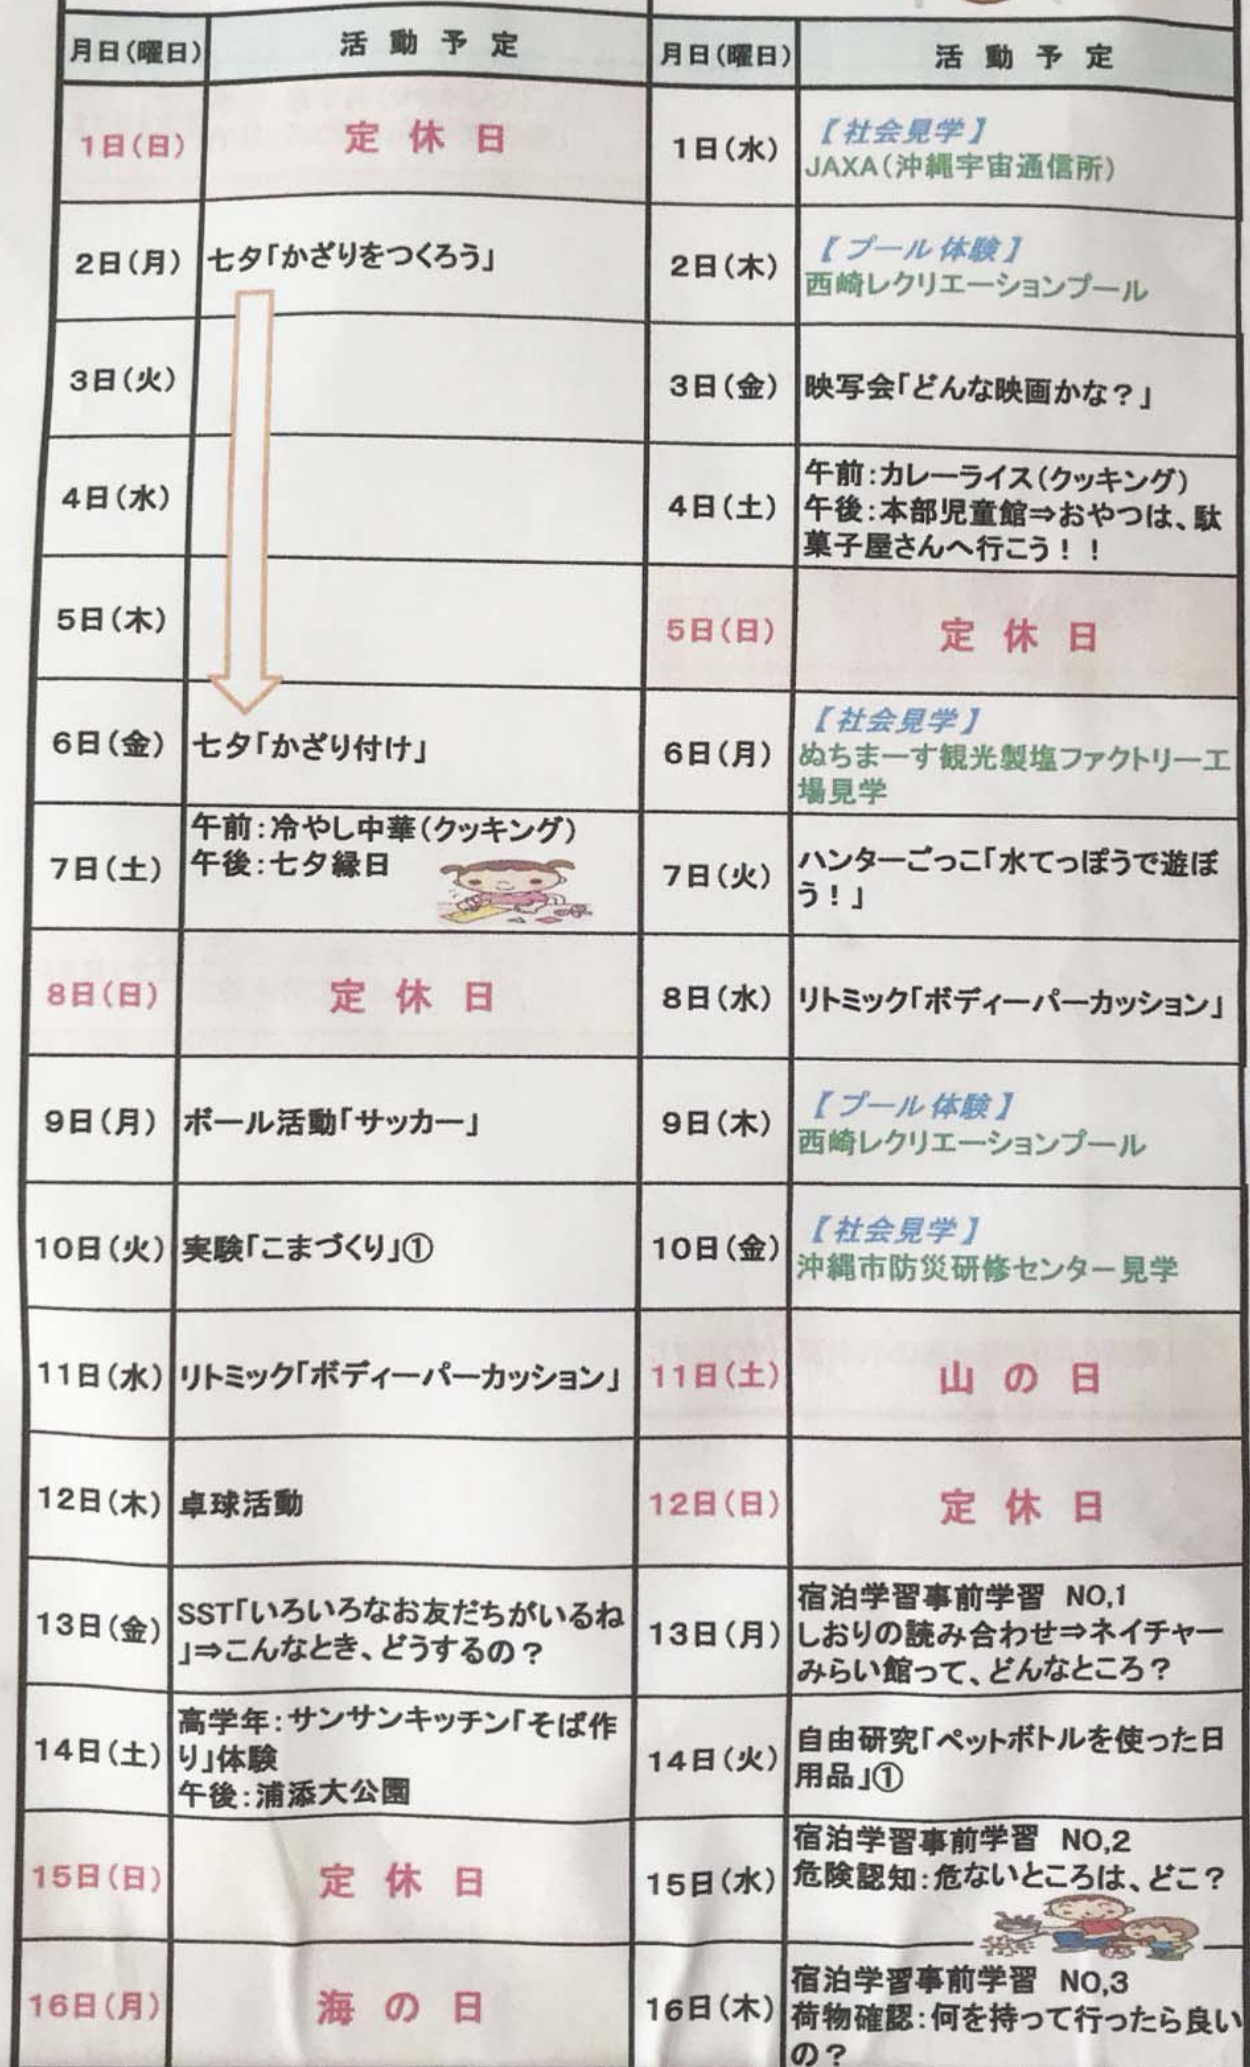 月日(曜日)
活動予定
1日(日)
定休日
2日(月)
七夕「かざりをつくろう」
3日(火)
4日(水)
5日(木)
6日(金)
七夕「かざり付け」
7日(土)
午前:冷やし中華(クッキング)
午後:七夕縁日
8日(日)
定休日
9日(月)
ボール活動「サッカー」
10日(火)
実験「こまづくり」①
11日(水)
リトミック「ボディーパーカッション」
12日(木)
卓球活動
13日(金)
SST「いろいろなお友だちがいるね
」⇒こんなとき、どうするの?
14日(土)
高学年:サンサンキッチン「そば作
り」体験
午後:浦添大公園
15日(日)
定休日
16日(月)
海の日
月日(曜日)
活動予定
1日(水)
【社会見学】
JAXA(沖縄宇宙通信所)
2日(木)
【プール体験】
西崎レクリエーションプール
3日(金)
映写会「どんな映画かな?」
4日(土)
午前:カレーライス(クッキング)
午後:本部児童館⇒おやつは、駄
菓子屋さんへ行こう!!
5日(日)
定休日
6日(月)
【社会見学】
ぬちまーす観光製塩ファクトリー工
場見学
7日(火)
ハンターごっこ「水てっぽうで遊ぼ
う!」
8日(水)
リトミック「ボディーパーカッション」
9日(木)
【プール体験】
西崎レクリエーションプール
10日(金)
【社会見学】
沖縄市防災研修センター見学
11日(土)
山の日
12日(日)
定休日
13日(月)
宿泊学習事前学習 NO,1
しおりの読み合わせ⇒ネイチャー
みらい館って、どんなところ?
14日(火)
自由研究「ペットボトルを使った日
用品」①
15日(水)
宿泊学習事前学習 NO,2
危険認知:危ないところは、どこ?
16日(木)
宿泊学習事前学習 NO,3
荷物確認:何を持って行ったら良い
の?